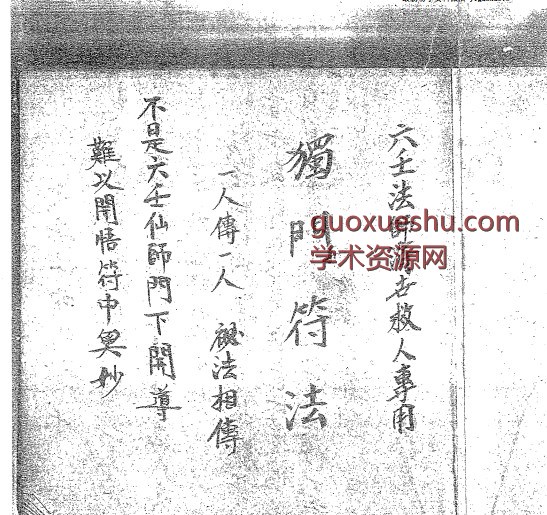 六壬法師濟世救人專用
獨門符法
一人傳一人 秘法相傳
不是六壬仙師門下開導
難以開悟符中奥妙
guoxueshu.com
学术资源网